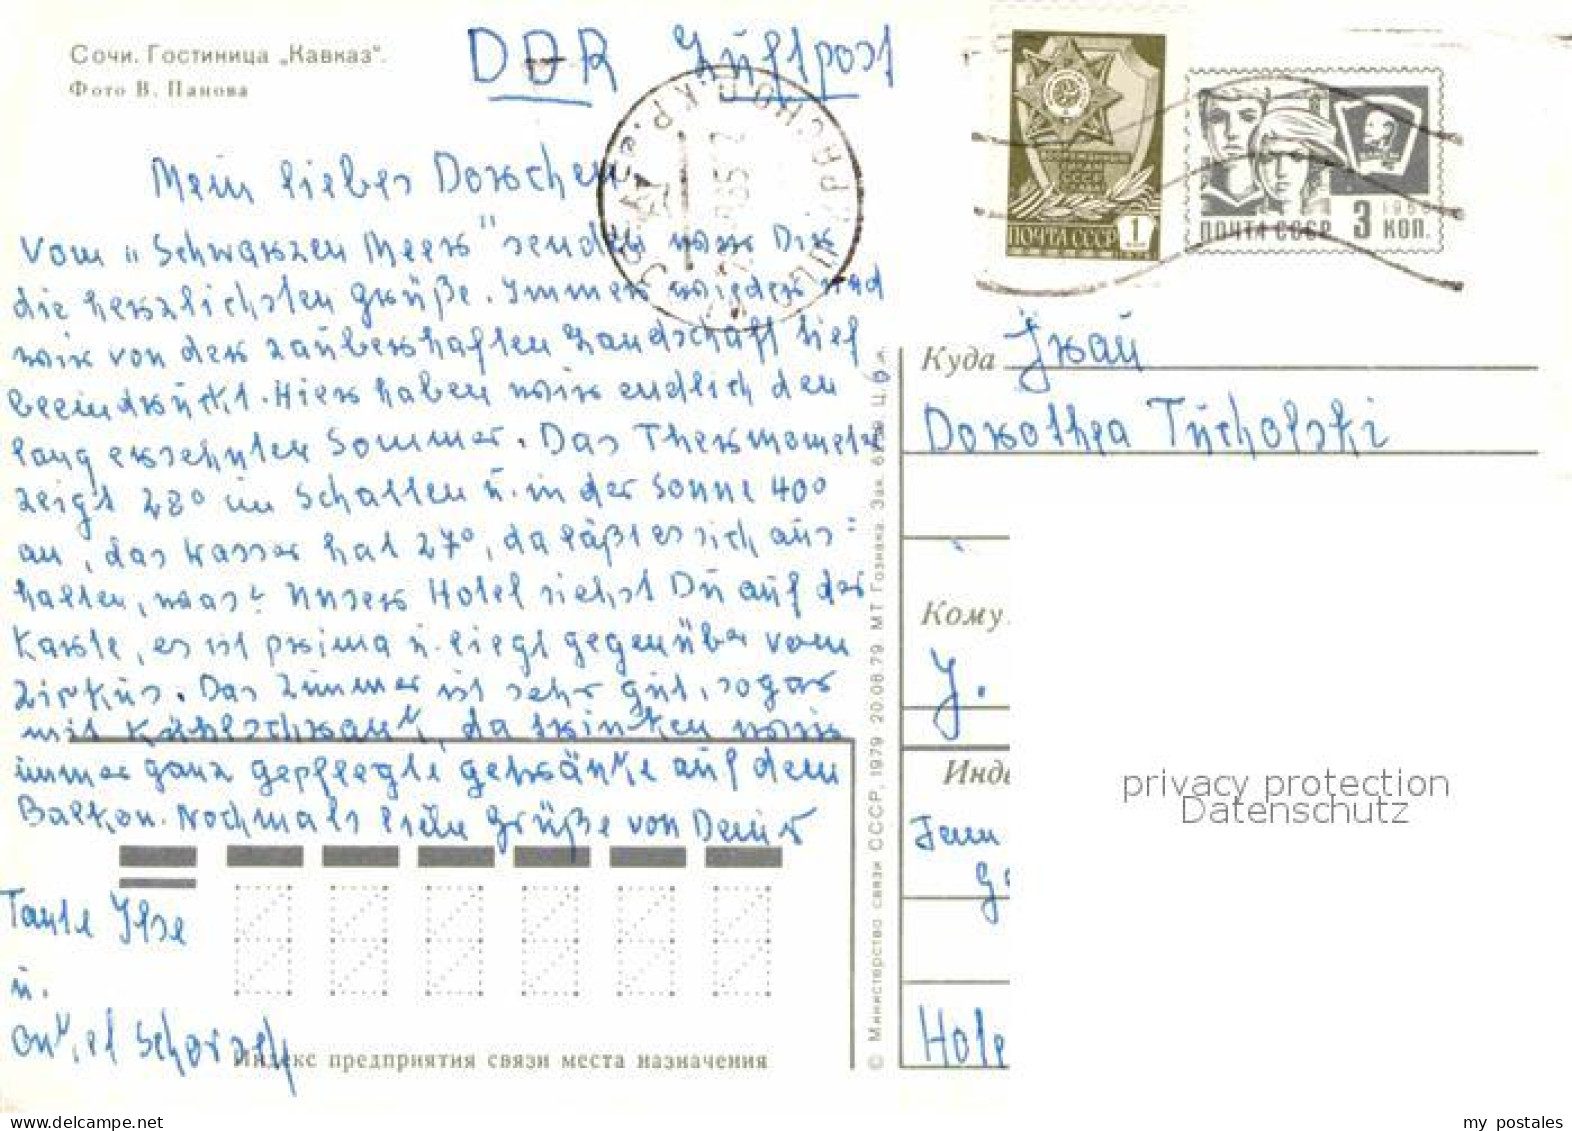 Сочи. Гостиница „Кавказ“.
Фото В. Панова
DDR Luftpost
ПОЧТА СССР 1
ПОЧТА СССР 3 КОП.
Mein liebes Dorchen
Vom „Schwarzen Meer“ senden wir Dir
die herzlichsten Grüße. Immer wieder sind
wir von der zauberhaften Landschaft tief
beeindruckt. Hier haben wir endlich den
lang ersehnten Sommer. Das Thermometer
zeigt 28° im Schatten u. in der Sonne 40°
an, das Wasser hat 27°, da läßt es sich aus=
halten, was? Unser Hotel siehst Du auf der
Karte, es ist prima u. liegt gegenüber vom
Zirkus. Das Zimmer ist sehr gut, sogar
mit Kühlschrank, da trinken wir
immer ganz gepflegte Getränke auf dem
Balkon. Nochmals liebe Grüße von Deiner
Tante Ilse
u.
Onkel
Индекс предприятия связи места назначения
© Министерство связи СССР, 1979 20.08.79. МТ Гознака. Зак.
Куда Frau
Dorothea Tucholski
Кому
J.
Инде
Hole
privacy protection
Datenschutz
my postales